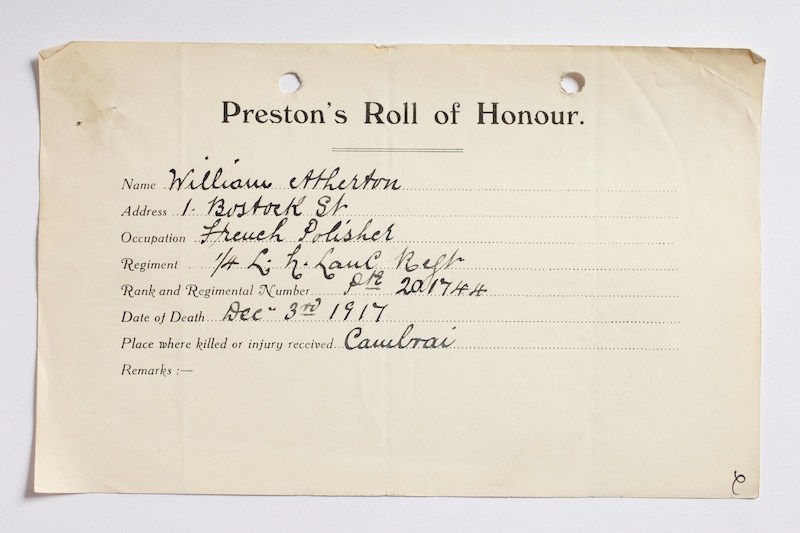 Preston's Roll of Honour.
Name William Atherton
Address 1. Bostock St
Occupation French Polisher
Regiment 1/4 L. N. Lanc Regt
Rank and Regimental Number Pte 201744
Date of Death Dec 3rd 1917
Place where killed or injury received Cambrai
Remarks :—